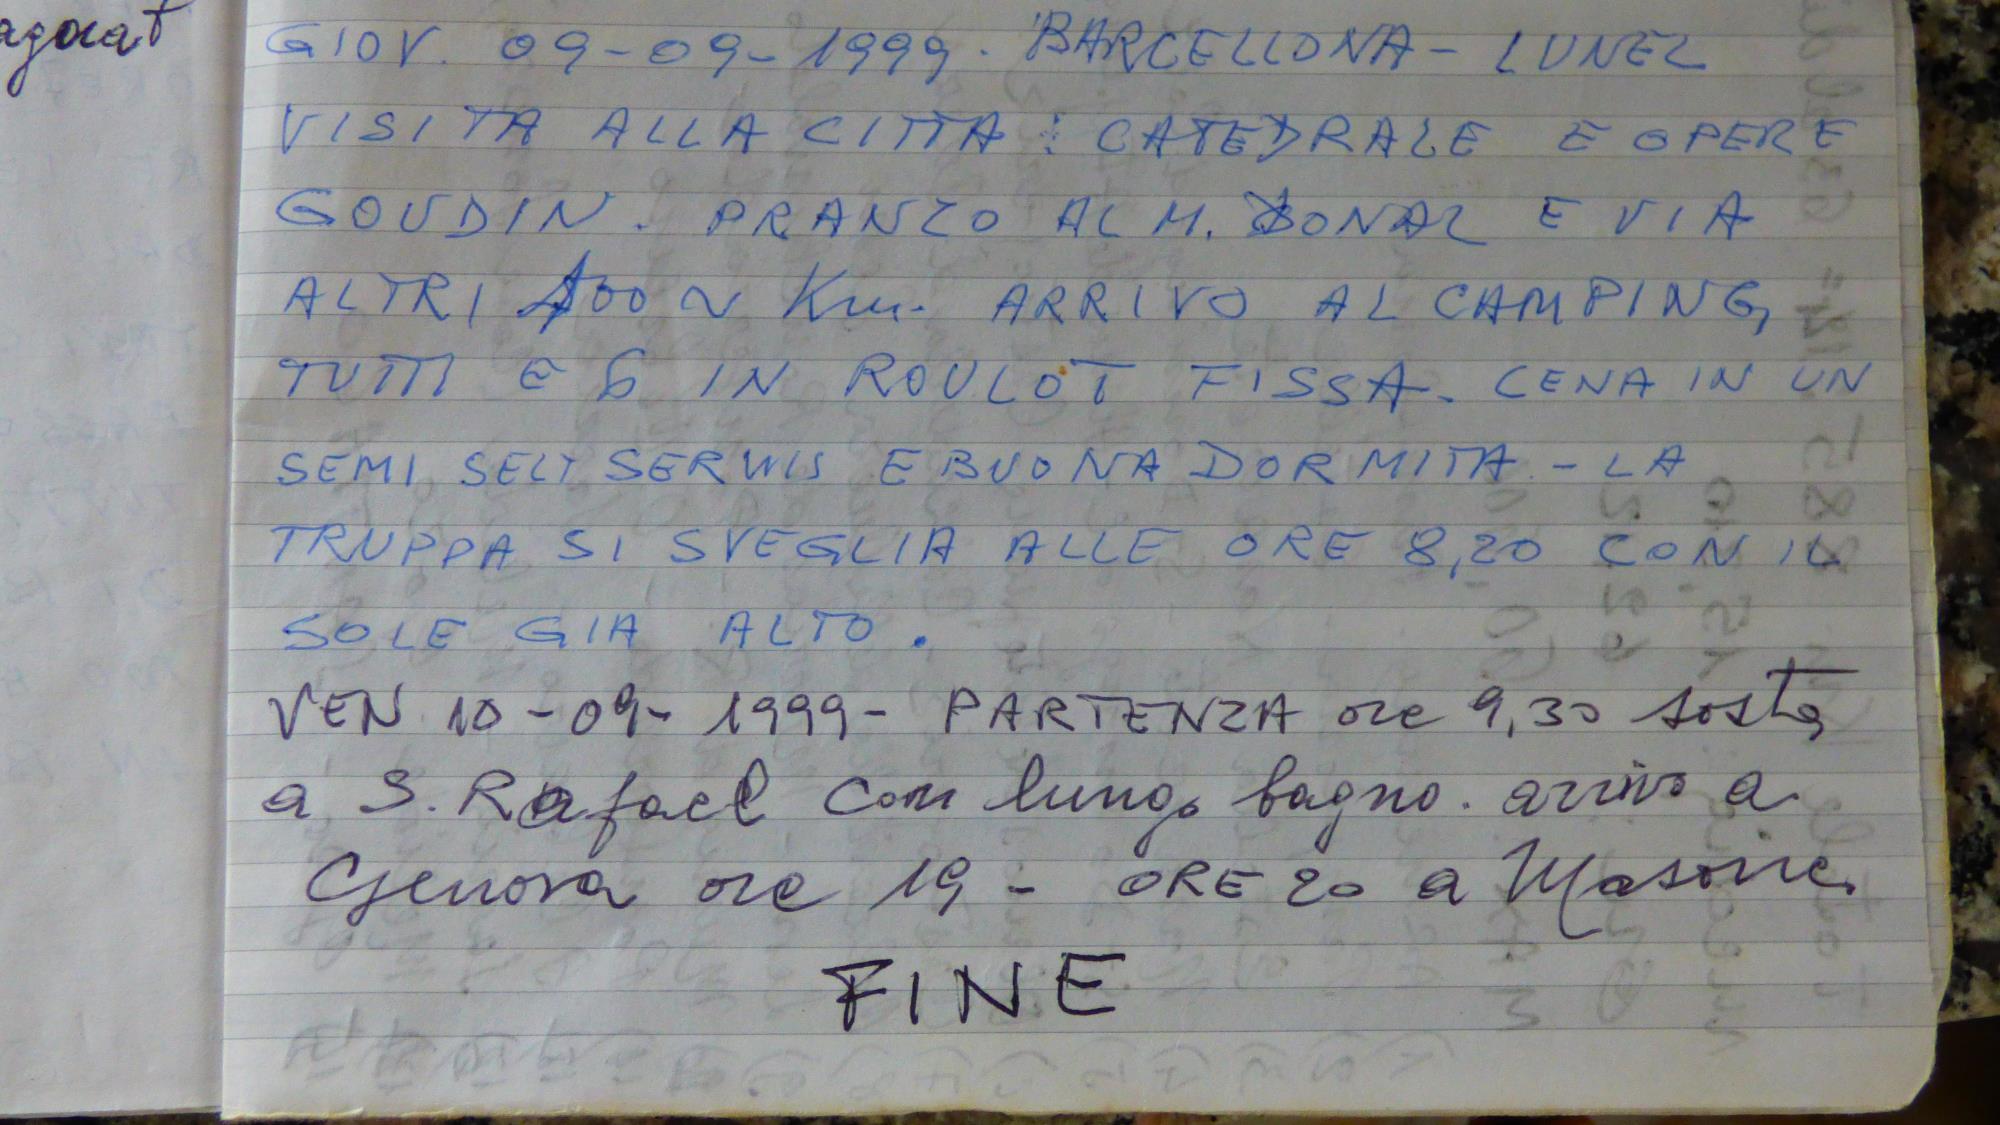 agorat
GIOV. 09-09-1999. BARCELLONA - LUNEL
VISITA ALLA CITTA : CATEDRALE E OPERE
GOUDIN. PRANZO AL M. DONAL E VIA
ALTRI 400 ~ Km. ARRIVO AL CAMPING,
TUTTI E 6 IN ROULOT FISSA. CENA IN UN
SEMI SELT SERWIS E BUONA DORMITA. - LA
TRUPPA SI SVEGLIA ALLE ORE 8,20 CON IL
SOLE GIA ALTO.
VEN 10-09-1999- PARTENZA ore 9,30 sosta
a S. Rafael con lungo bagno. arrivo a
Genova ore 19 - ORE 20 a Masone.
FINE